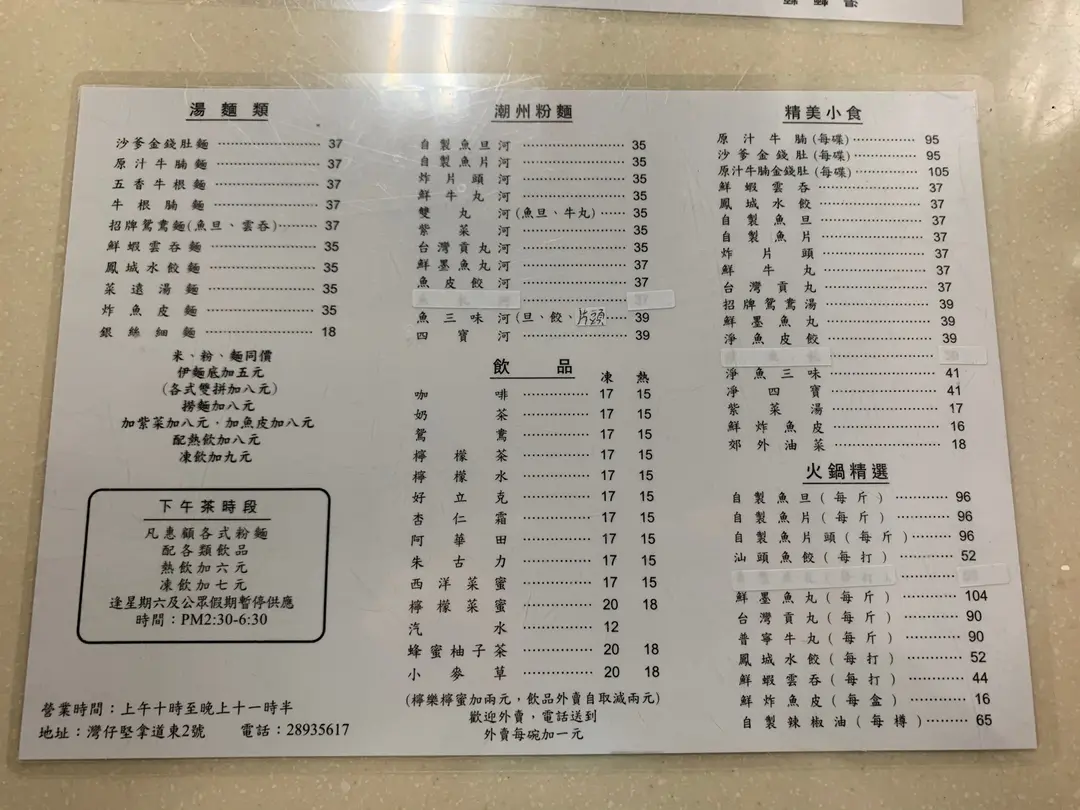 湯麵類
沙爹金錢肚麵 37
原汁牛腩麵 37
五香牛根麵 37
牛根腩麵 37
招牌鴛鴦麵(魚旦、雲吞) 37
鮮蝦雲吞麵 35
鳳城水餃麵 35
菜遠湯麵 35
炸魚皮麵 35
銀絲細麵 18
米、粉、麵同價
伊麵底加五元
(各式雙拼加八元)
撈麵加八元
加紫菜加八元,加魚皮加八元
配熱飲加八元
凍飲加九元
下午茶時段
凡惠顧各式粉麵
配各類飲品
熱飲加六元
凍飲加七元
逢星期六及公眾假期暫停供應
時間:PM2:30-6:30
營業時間:上午十時至晚上十一時半
地址:灣仔堅拿道東2號 電話:28935617
潮州粉麵
自製魚旦河 35
自製魚片河 35
炸片頭河 35
鮮牛丸河 35
雙丸河(魚旦、牛丸) 35
紫菜河 35
台灣貢丸河 35
鮮墨魚丸河 35
魚皮餃河 37
魚三味河(旦、餃、片頭 39
四寶河 39
飲品
凍 熱
咖啡 17 15
奶茶 17 15
鴛鴦 17 15
檸檬茶 17 15
檸檬水 17 15
好立克 17 15
杏仁霜 17 15
阿華田 17 15
朱古力 17 15
西洋菜蜜 17 15
檸檬菜蜜 20 18
汽水 12
蜂蜜柚子茶 20 18
小麥草 20 18
(檸樂檸蜜加兩元,飲品外賣自取減兩元)
歡迎外賣,電話送到
外賣每碗加一元
精美小食
原汁牛腩(每碟) 95
沙爹金錢肚(每碟) 95
原汁牛腩金錢肚(每碟) 105
鮮蝦雲吞 37
鳳城水餃 37
自製魚旦 37
自製魚片 37
炸片頭 37
鮮牛丸 37
台灣貢丸 37
招牌鴛鴦湯 39
鮮墨魚丸 39
淨魚皮餃 39
淨魚三味 41
淨四寶 41
紫菜湯 17
鮮炸魚皮 16
郊外油菜 18
火鍋精選
自製魚旦(每斤) 96
自製魚片(每斤) 96
自製魚片頭(每斤) 96
汕頭魚餃(每打) 52
鮮墨魚丸(每斤) 104
台灣貢丸(每斤) 90
普寧牛丸(每斤) 90
鳳城水餃(每打) 52
鮮蝦雲吞(每打) 44
鮮炸魚皮(每盒) 16
自製辣椒油(每樽) 65